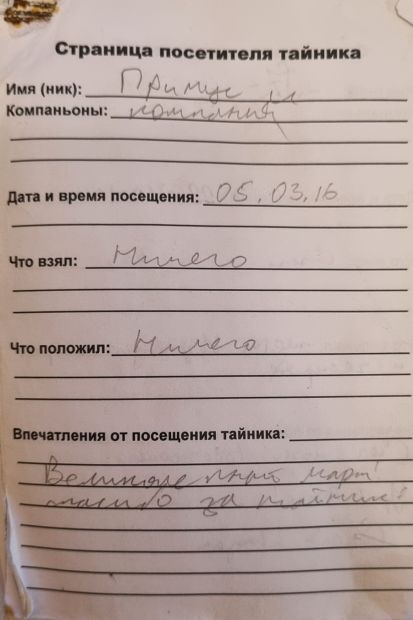 Страница посетителя тайника
Имя (ник): Примус и
Компаньоны: компания
Дата и время посещения: 05.03.16
Что взял: Ничего
Что положил: Ничего
Впечатления от посещения тайника:
Великолепный март!
спасибо за тайник!